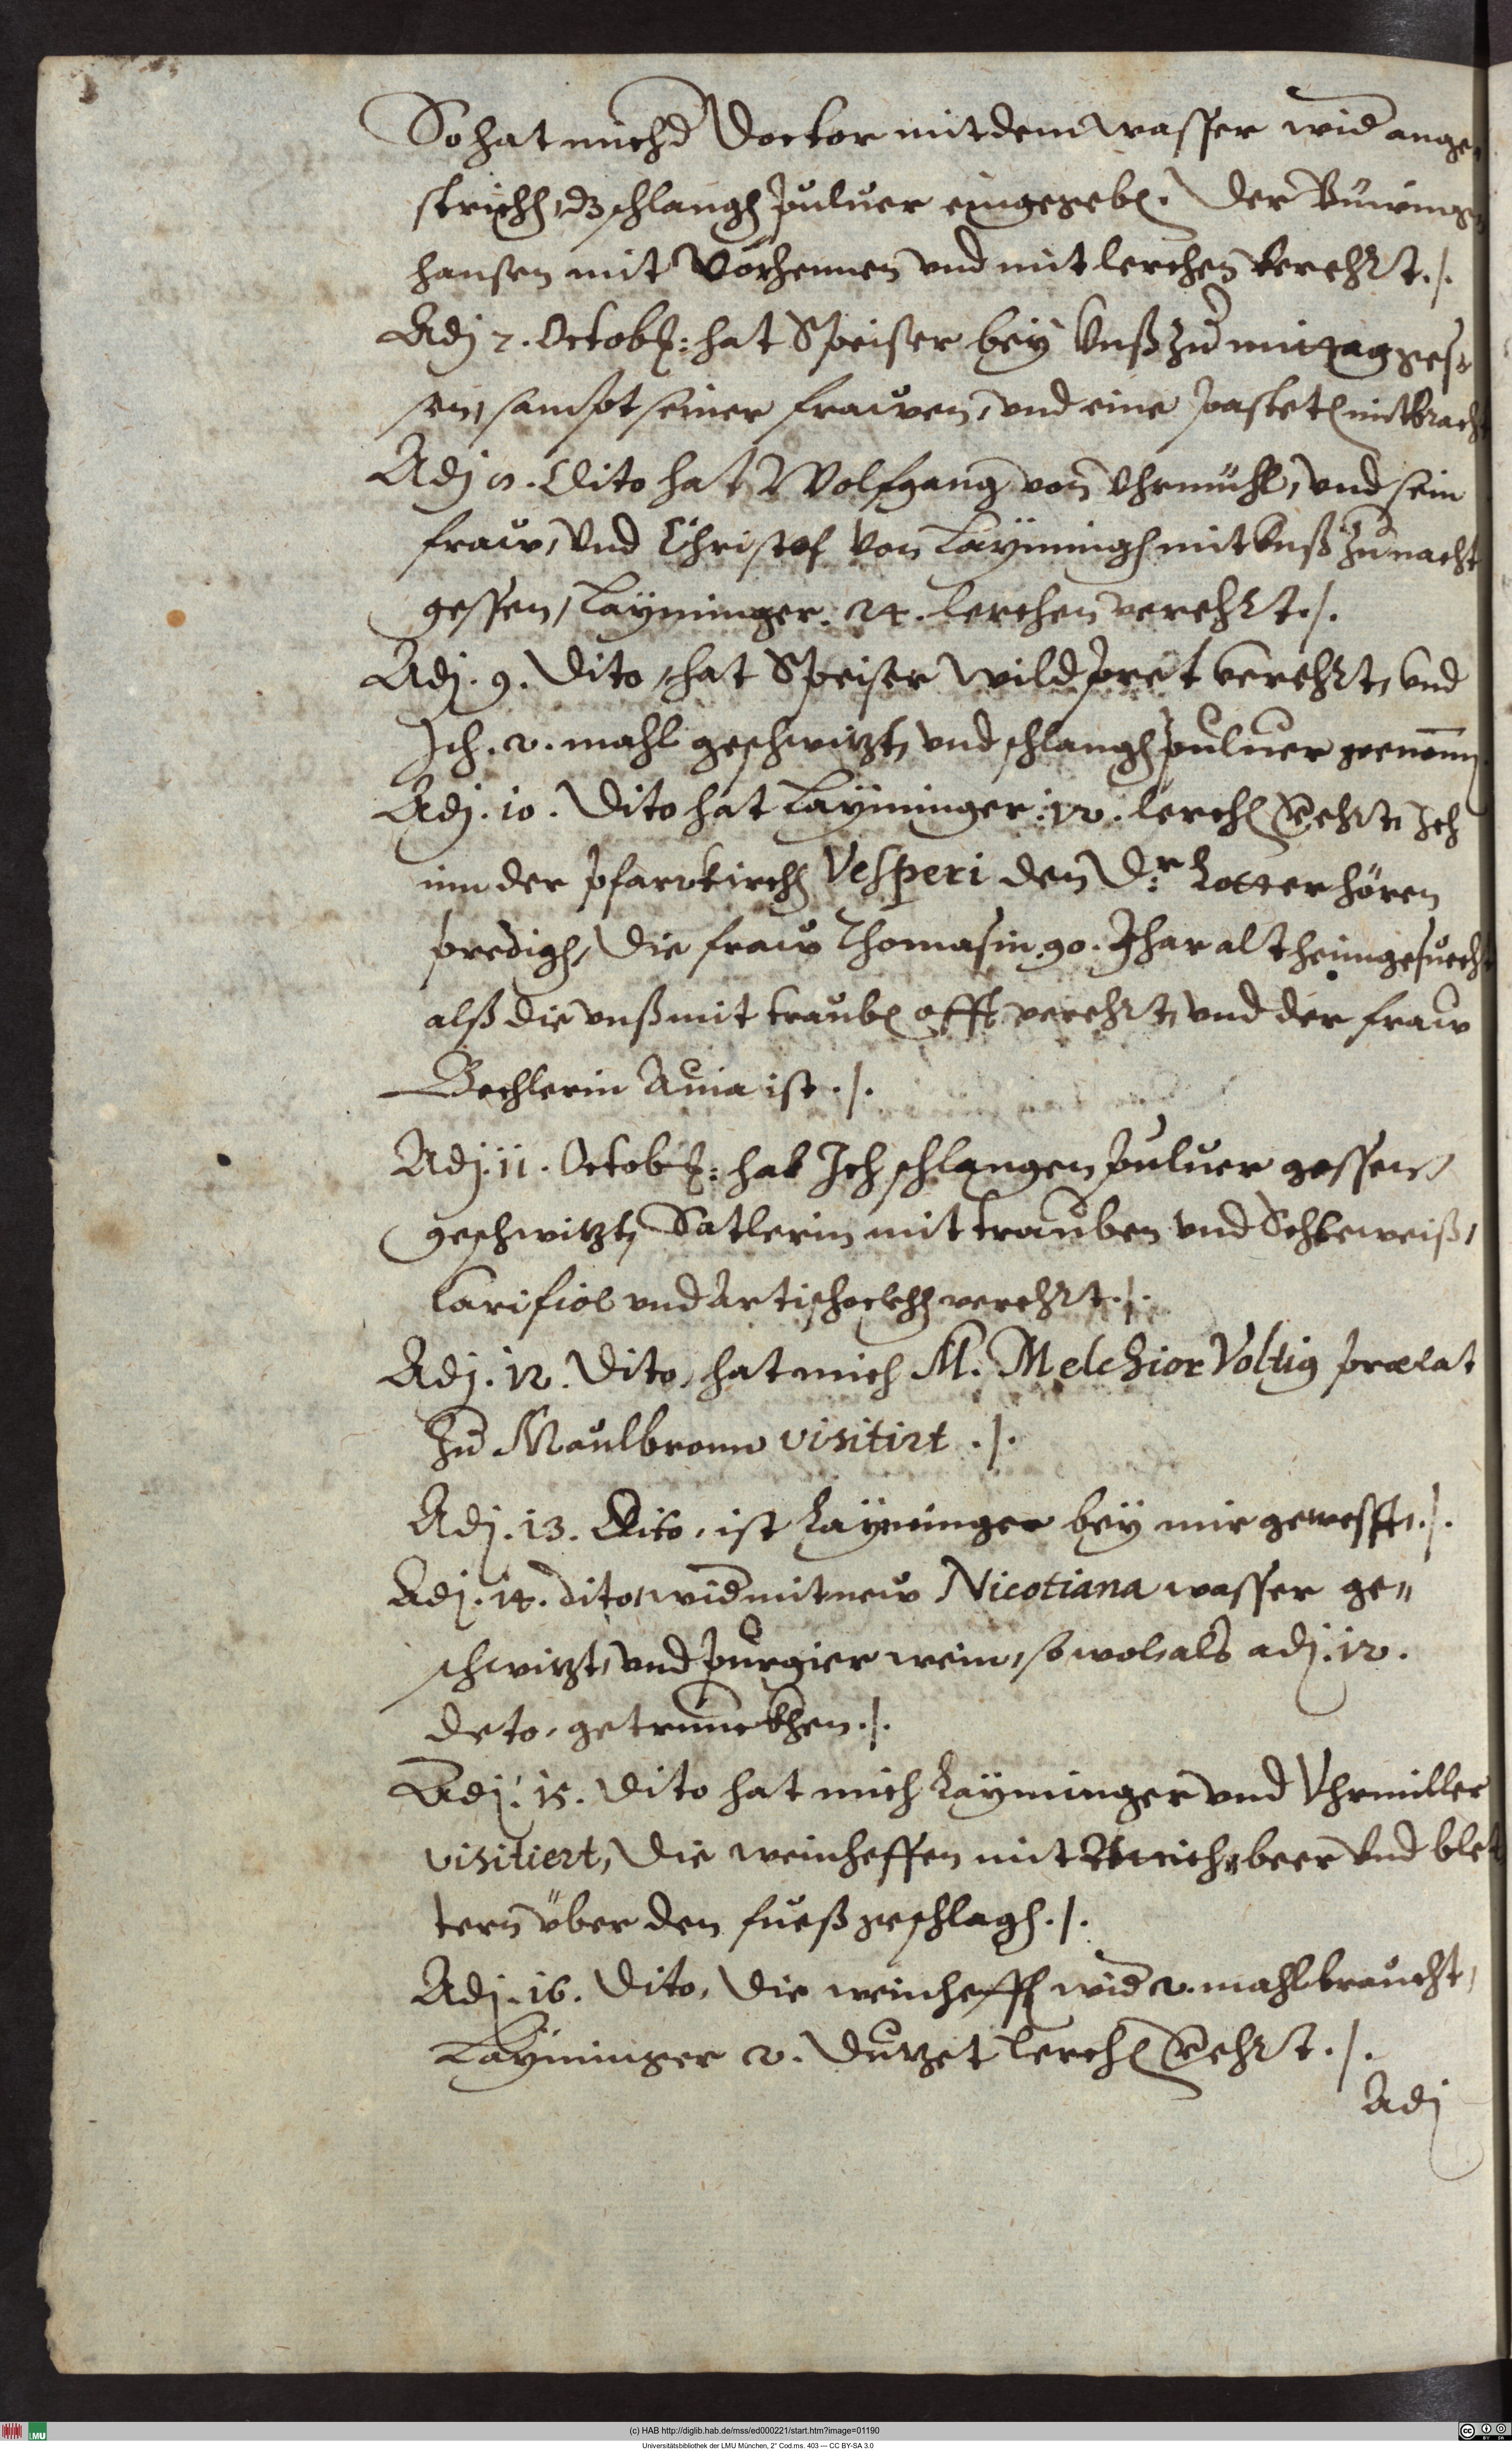 So hat mich d Doctor mit dem wasser wid ange-
strichē, dz schlangē puluer eingegebē. Der Buwing-
hausen mit Vörhennen vnd mit lerchen verehrt ./.
Adj 7. Octobr: hat Speiser bey vnß zu mittag ges-
sen, sampt seiner frawen, vnd eine pastetē mitbracht
Adj 8. Dito hat Wolfgang von Vhrmühl, vnd sein
fraw, vnd Christof von Laÿmingē mit vnß zu nacht
gessen, Laÿminger. 24. lerchen verehrt ./.
Adj. 9. Dito, hat Speiser wildpret verehrt, vnd
Ich. 2. mahl geschwitzt, vnd schlangē puluer genomē
Adj. 10. Dito hat Laÿminger: 12. lerchē vehrt, Ich
inn der pfarrkirchē Vesperi den D:r Lotter hören
predigē, die fraw Thomasin 90. Jhar alt heimgesucht
alß die vnß mit traubē offt verehrt, vnd der fraw
Bechlerin Ania ist ./.
Adj. 11. Octobr: hab Ich schlangen puluer gessen,
geschwitzt, Satlerin mit trauben vnd Schleweiß,
Carifiol vnd Artischockhē verehrt ./.
Adj. 12. Dito, hat mich M. Melchior Voltig prælat
zu Maulbronn visitirt ./.
Adj. 13. Dito, ist Laÿminger bey mir gewesst ./.
Adj. 14. dito, wid mit new Nicotiana wasser ge-
schwitzt, vnd purgier wein, so wol als adj. 12.
deto, getrunckhen ./.
Adj. 15. Dito hat mich Laÿminger vnd Vhrmiller
visitiert, die weinheffen mit beer vnd blet
tern über den fueß geschlagē ./.
Adj. 16. Dito, die weinheffē wid 2. mahl braucht,
Laÿminger 2. Dutzet lerchē vehrt ./.
Adj
(c) HAB http://diglib.hab.de/mss/ed000221/start.htm?image=01190
Universitätsbibliothek der LMU München, 2° Cod.ms. 403 — CC BY-SA 3.0
LMU